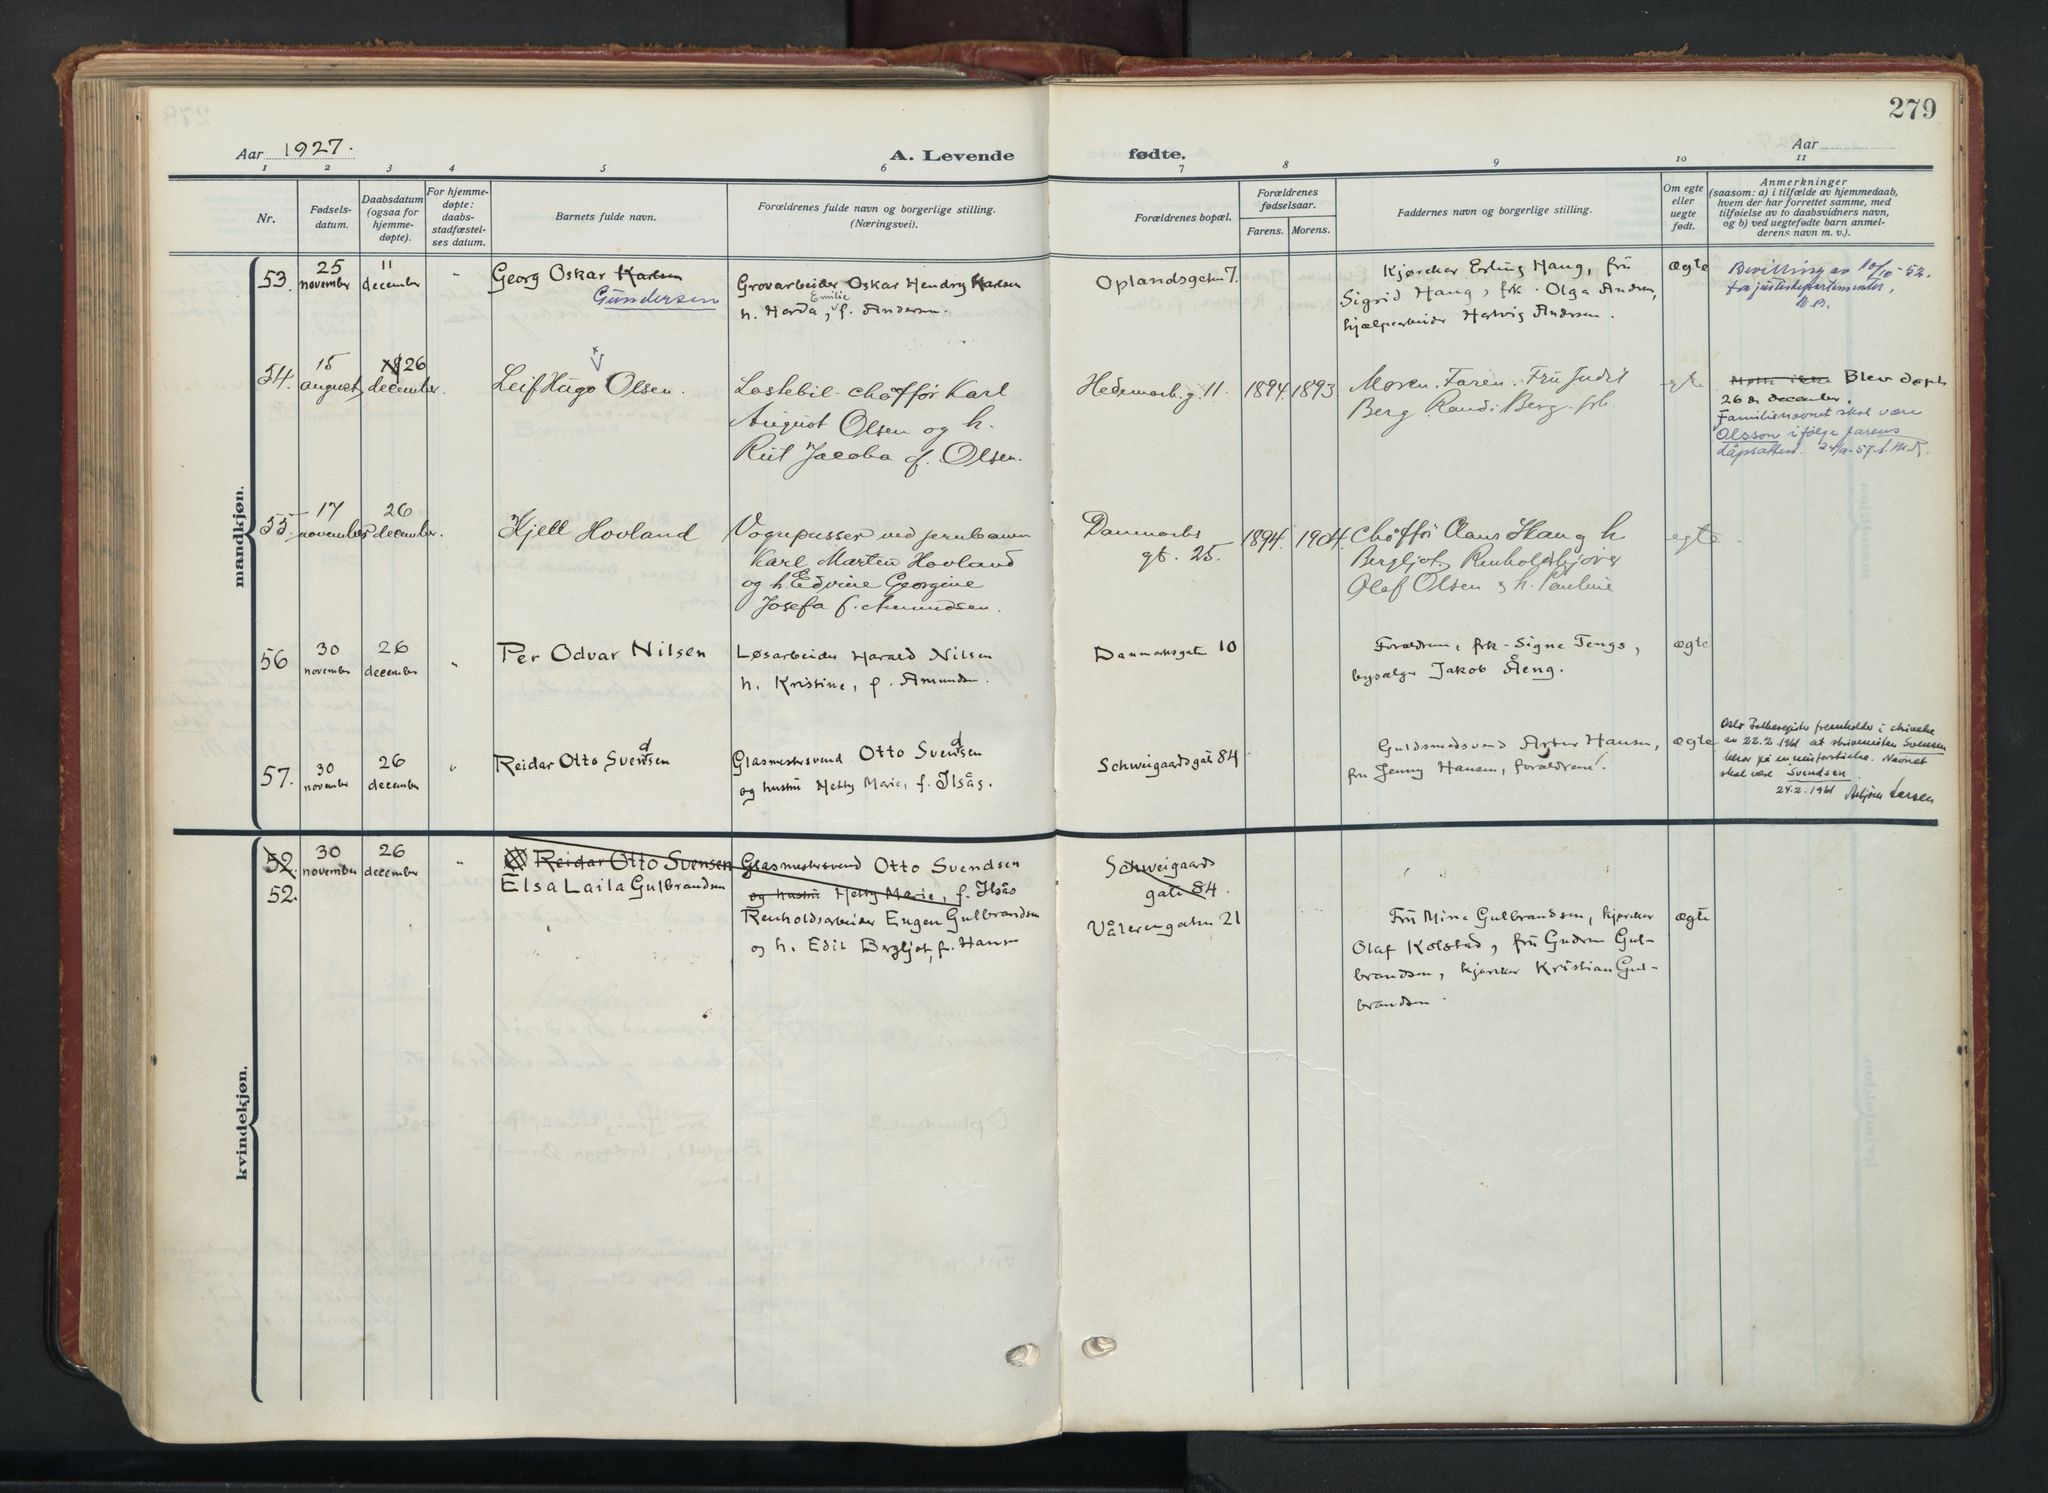 279
Aar 1927.
A. Levende
fødte.
Aar
1 2 3 4 5 6 7 8 9 10 11
Nr.
Fødsels-
datum.
Daabsdatum
(ogsaa for
hjemme-
døpte).
For hjemme-
døpte:
daabs-
stadfæstel-
ses datum.
Barnets fulde navn.
Forældrenes fulde navn og borgerlige stilling.
(Næringsvei).
Forældrenes bopæl.
Forældrenes
fødselsaar.
Farens. Morens.
Faddernes navn og borgerlige stilling.
Om egte
eller
uegte
født.
Anmerkninger
(saasom: a) i tilfælde av hjemmedaab,
hvem der har forrettet samme, med
tilføielse av to daabsvidners navn,
og b) ved uegtefødte barn anmel-
derens navn m. v.).
mandkjøn.
53.
25
november
11
december
"
Georg Oskar Karlsen
Gundersen
Grovarbeider Oskar Hendry Karlsen
Emilie
h. Harda, f. Andersen.
Oplandsgaten 7.
Kjørekar Erling Haug, fru
Sigrid Haug, frk. Olga Andersen,
hjælpearbeider Hartvig Andersen.
ægte
Bevilling av 10/10-52.
fra justisdepartementet,
54.
15
august
26
december.
Leif Hugo Olsen.
Lastebil-chåffør Karl
August Olsen og h.
Rut Jacoba f. Olsen.
Hedemark.g. 11.
1894.
1893.
Moren. Faren. Fru Judit
Berg. Randi Berg frk.
egte
Møtte ikke Blev døpt
26 de december.
Familienavnet skal være
Olsson i følge farens
dåpsattest.
55.
17
november
26
december.
Kjell Hovland
Vognpusser ved jernbanen
Karl Martin Hovland
og h. Edvine Georgine
Josefa f. Amundsen.
Danmarks
gt. 25.
1894.
1904.
Chåffør Claus Haug h
Bergljot. Renholdskjører
Olaf Olsen & h. Pauline
egte
56
30
november
26
december
"
Per Odvar Nilsen
Løsarbeider Harald Nilsen
h. Kristine, f. Amundsen.
Danmarksgaten 10
Forældrene, frk. Signe Tengs,
bysælger Jakob Åeng.
ægte
57.
30
november
26
december
"
d
Reidar Otto Svensen
d
Glasmestersvend Otto Svensen
og hustru Hetty Marie, f. Ilsås.
Schweigaardsgate 84
Guldsmedsvend Artur Hansen,
fru Jenny Hansen, forældrene.
ægte
Oslo Folkeregister fremholder i skrivelse
av 22.2.1961 at skrivemåten Svensen
beror på en misforståelse. Navnet
skal være Svendsen
24.2.1961 Asbjørn Larsen
kvindekjøn.
52.
52.
30
november
26
december
"
Reidar Otto Svensen
Elsa Laila Gulbrandsen
Glasmestersvend Otto Svendsen
og hustru Hetty Marie, f. Ilsås
Renholdsarbeider Eugen Gulbrandsen
og h. Edit Bergljot, f. Hansen
Schweigaards
gate 84.
Vålerengaten 21
Fru Mina Gulbrandsen, kjørekar
Olaf Kolstad, fru Gudrun Gul-
brandsen, kjørekar Kristian Gul-
brandsen.
ægte